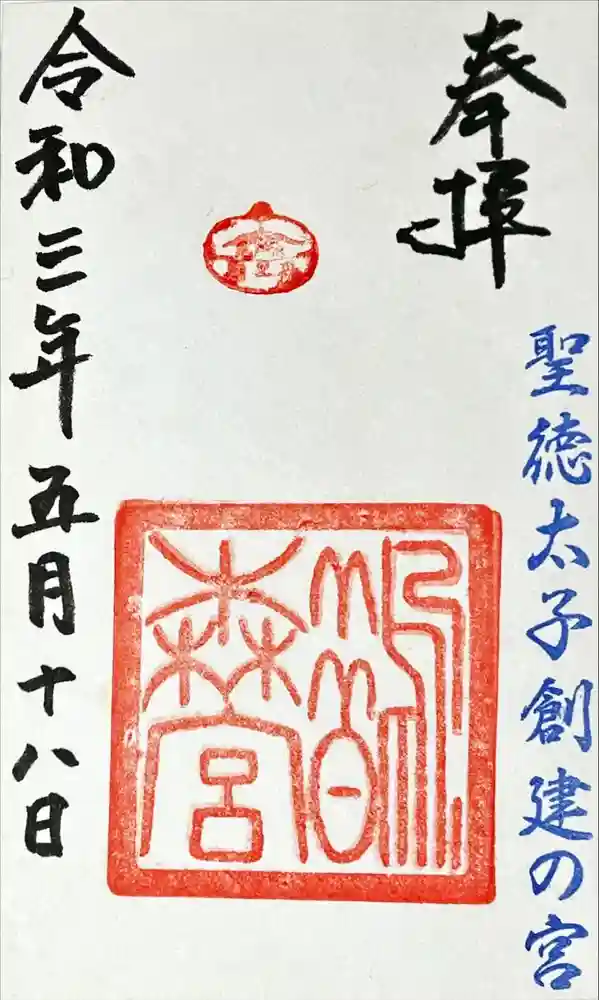 奉拝
聖徳太子創建の宮
鵲
森宮
令和三年五月十八日